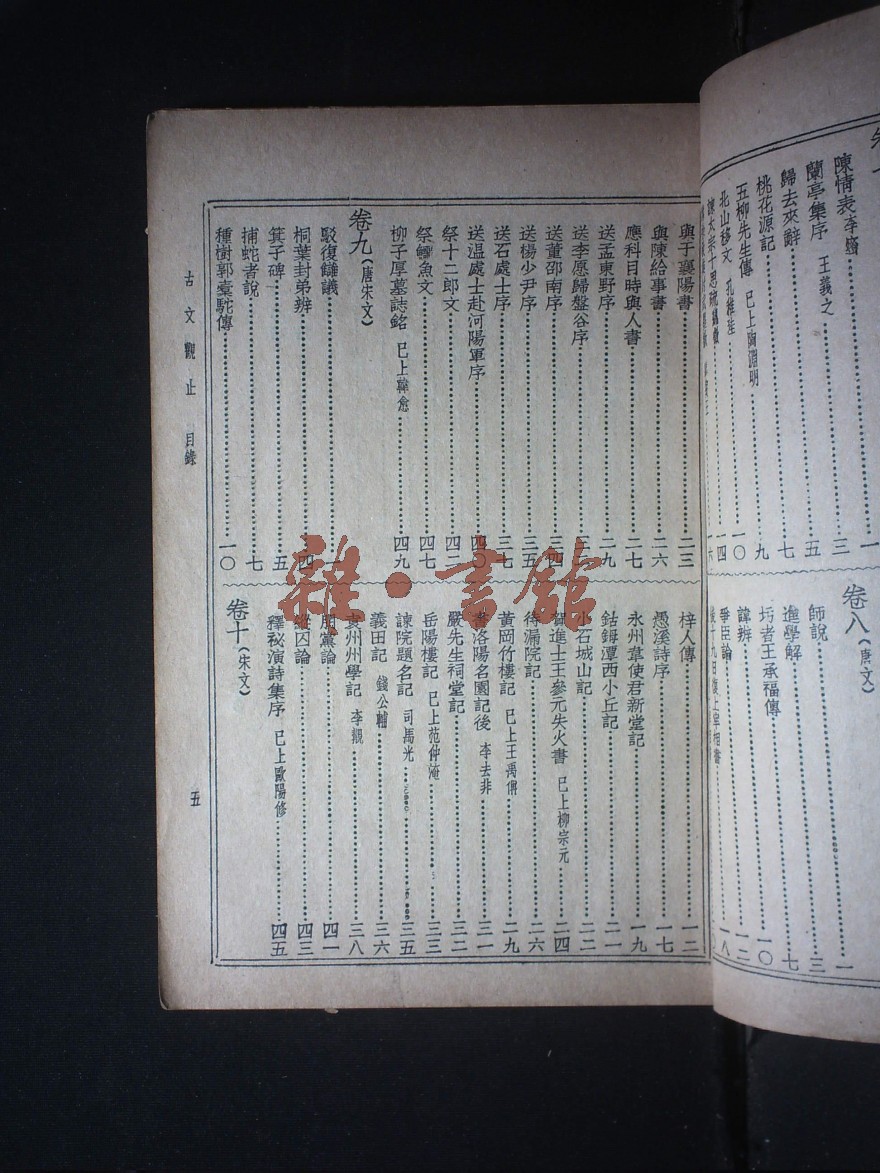 陳情表 李密 一
蘭亭集序 王羲之 三
歸去來辭 五
桃花源記 七
五柳先生傳 已上陶淵明 九
北山移文 孔稚珪 一〇
諫太宗十思疏 魏徵 一四
卷八（唐文）
師說 一
進學解 三
圬者王承福傳 七
諱辨 一〇
爭臣論 一二
後十九日復上宰相書 一八
與于襄陽書 二三
與陳給事書 二六
應科目時與人書 二七
送孟東野序 二九
送李愿歸盤谷序 三二
送董邵南序 三四
送楊少尹序 三五
送石處士序 三七
送温處士赴河陽軍序 四〇
祭十二郎文 四二
祭鱷魚文 四七
柳子厚墓誌銘 已上韓愈 四九
卷九（唐宋文）
駁復讎議
桐葉封弟辨 四
箕子碑 五
捕蛇者說 七
種樹郭橐駝傳 一〇
梓人傳 一二
愚溪詩序 一七
永州韋使君新堂記 一九
鈷鉧潭西小丘記 二一
小石城山記 二二
賀進士王參元失火書 已上柳宗元 二四
待漏院記 二六
黃岡竹樓記 已上王禹偁 二九
書洛陽名園記後 李去非 三一
嚴先生祠堂記 三二
岳陽樓記 已上范仲淹 三三
諫院題名記 司馬光 三五
義田記 錢公輔 三六
袁州州學記 李覯 三八
朋黨論 四一
縱囚論 四三
釋秘演詩集序 已上歐陽修 四五
卷十（宋文）
古文觀止 目錄
五
雜·書館